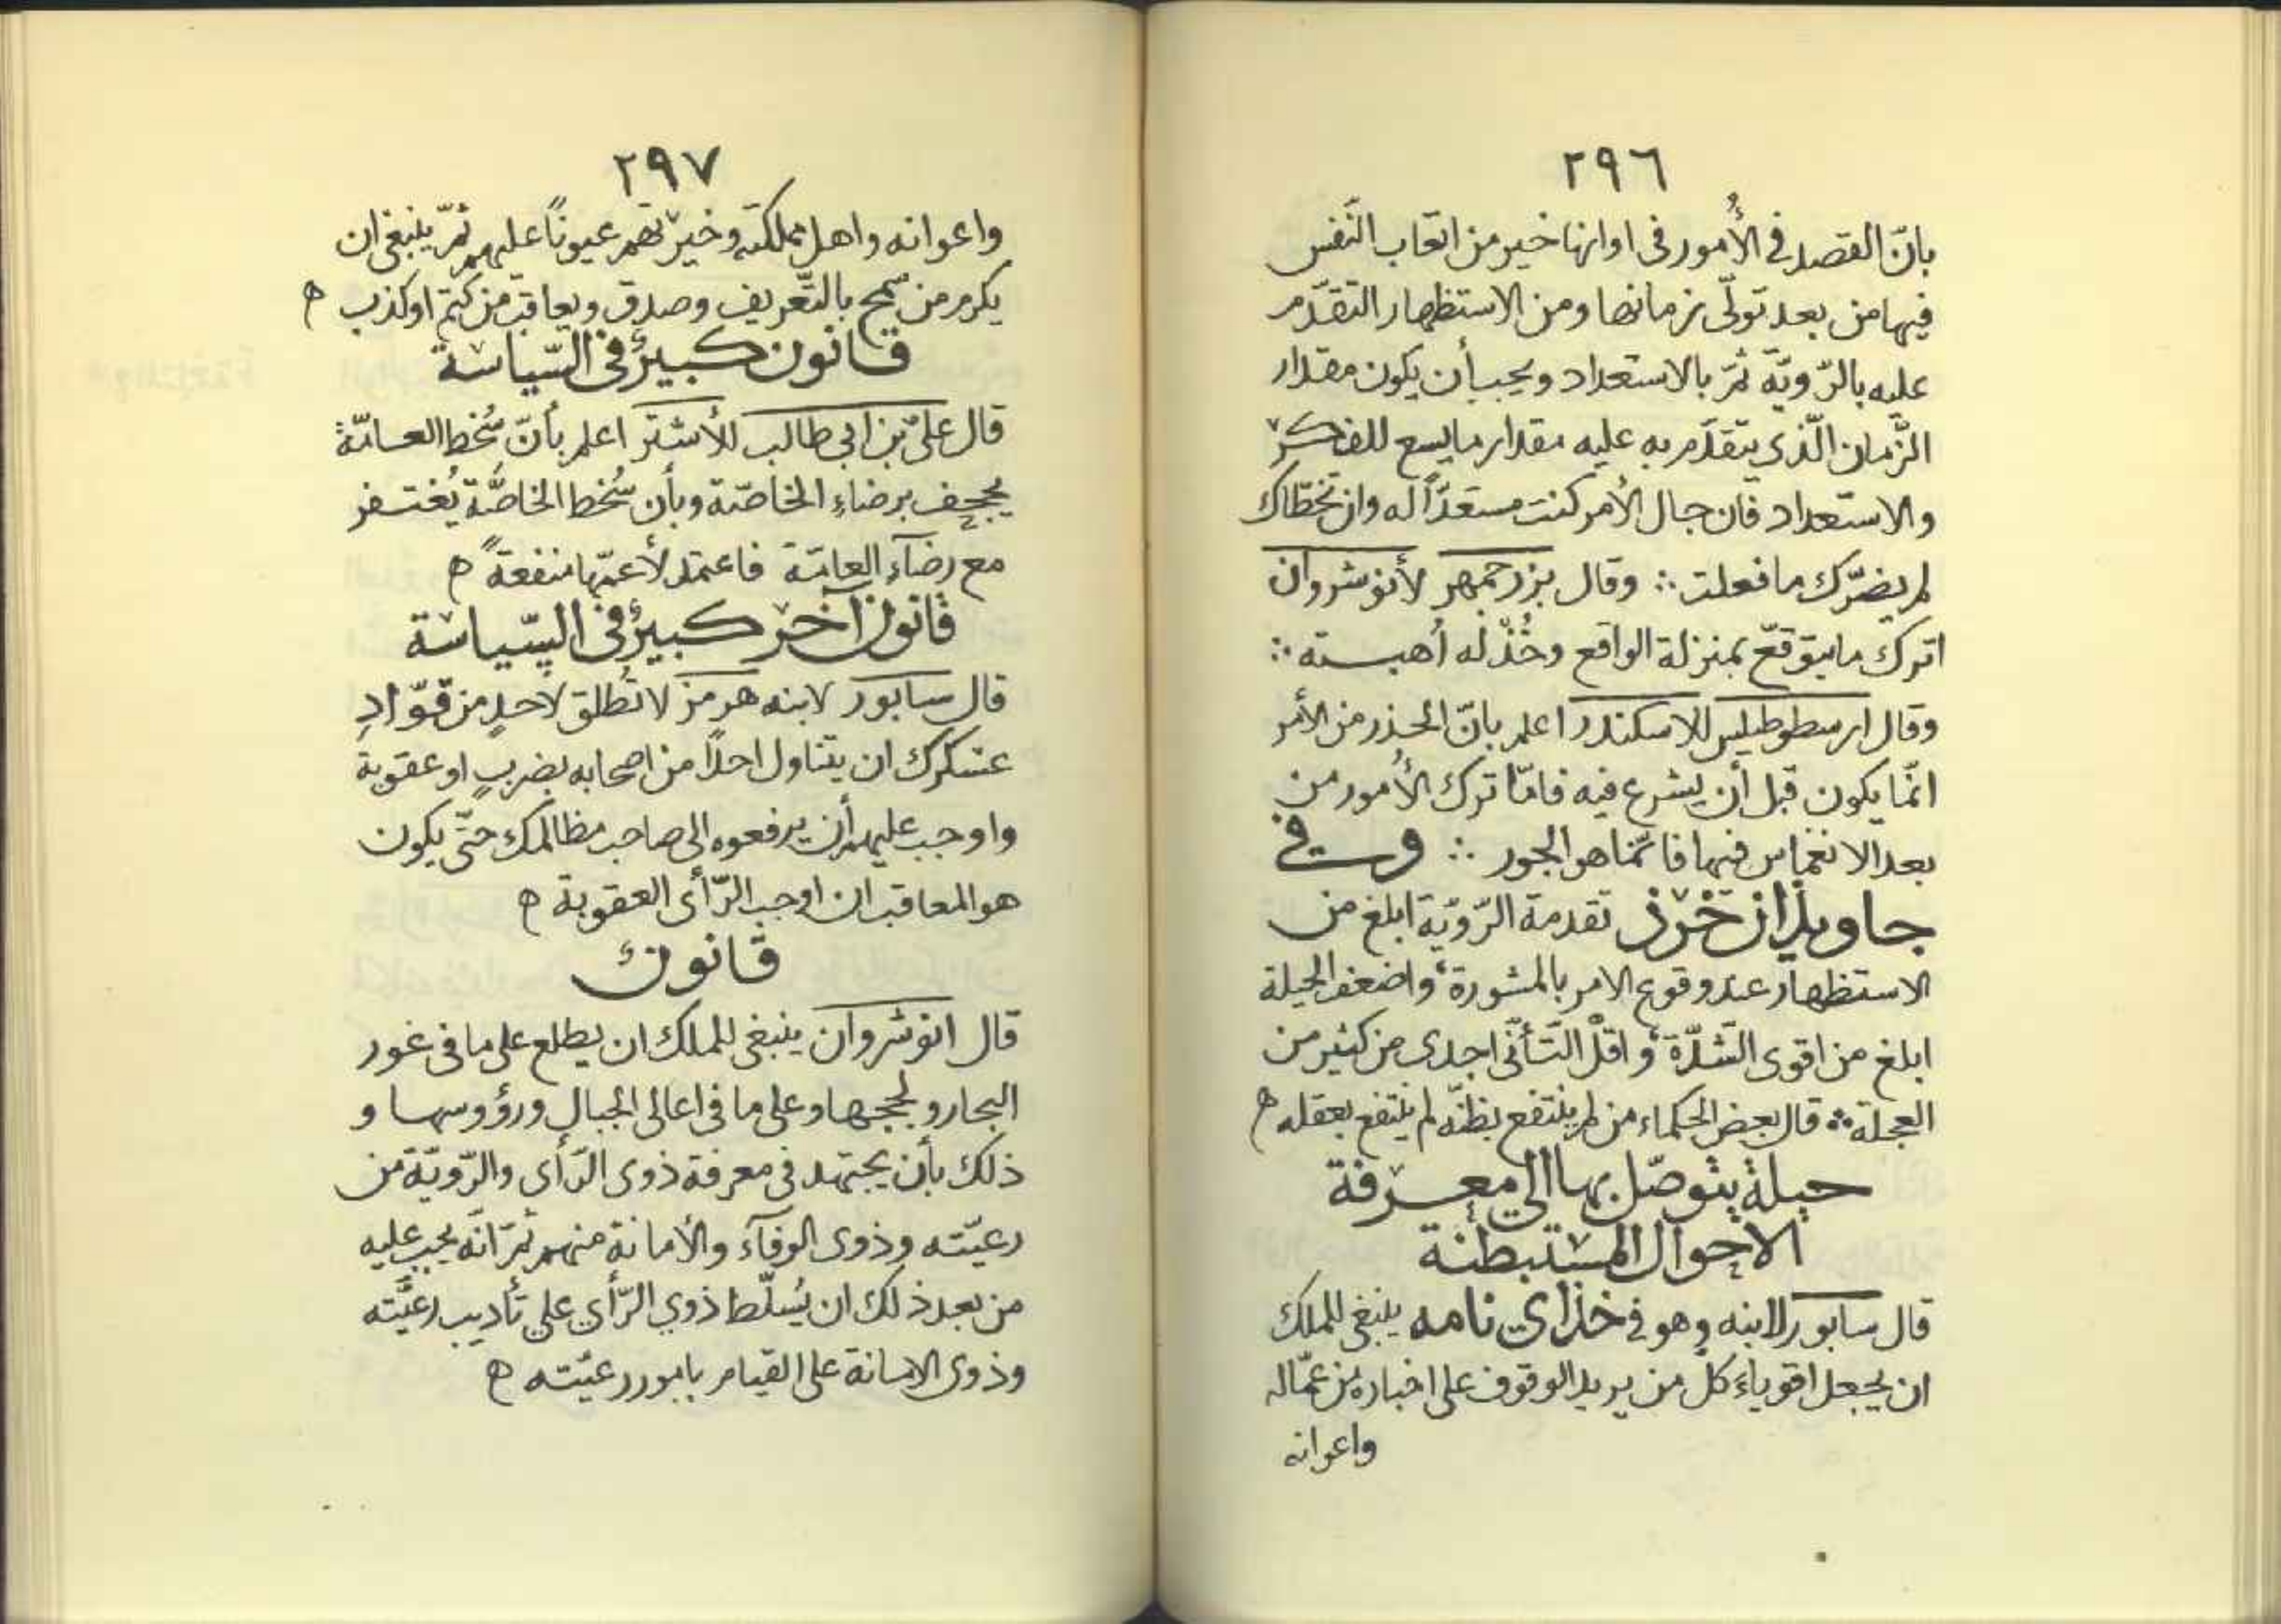 ٢٩٦
بانّ القصد فى الأُمور فى اوانها خير من اتعاب النَّفس
فيها من بعد تولّى زمانها ومن الاستظهار التقدّم
عليه بالرّويّة ثمّ بالاستعداد ويجب أن يكون مقدار
الزّمان الّذى يتقدّم به عليه مقدار ما يسع للفكر
والاستعداد فان جال الأمر كنت مستعدّاً له وان تخطّاك
لم يضرّك ما فعلت ∴ وقال بزرجمهر لأنوشروان
اترك ما يتوقّع بمنزلة الواقع وخُذْ له أُهبته ∴
وقال ارسطوطيلس للاسكندر اعلم بانّ الحذر من الأمر
انّما يكون قبل أن يشرع فيه فامّا ترك الأُمور من
بعد الانغماس فيها فانّما هو الجور ∴ وفى
جاويذان خرذ تقدمة الرّويّة ابلغ من
الاستظهار عند وقوع الامر بالمشورة، واضعف الحيلة
ابلغ من اقوى الشّدّة، واقلّ التَّأنّى اجدى من كثير من
العجلة ∴ قال بعض الحكماء من لم ينتفع بظنّه لم ينتفع بعقله ه
حيلة يتوصّل بها الى معرفة
الاحوال المستبطنة
قال سابور لابنه وهو فى خذاى نامه ينبغى للملك
ان يجعل اقوياء كلّ من يريد الوقوف على اخباره من عمّاله
واعوانه
٢٩٧
واعوانه واهل مملكته وخيرتهم عيوناً عليهم ثمّ ينبغى ان
يكرم من سمح بالتّعريف وصدق ويعاقب من كتم او كذب ه
قانون كبير فى السّياسة
قال علىّ بن ابى طالب للأشتر اعلم بأنّ سُخط العامّة
يجحف برضاءِ الخاصّة وبأن سُخط الخاصّة يُغتفر
مع رضآء العامّة فاعتمد لأعمّها منفعةً ه
قانون آخر كبير فى السّياسة
قال سابور لابنه هرمز لا تُطلق لأحدٍ من قوّادِ
عسكرك ان يتناول احدًا من اصحابه بضربٍ او عقوبة
واوجب عليهم أن يرفعوه الى صاحب مظالمك حتّى يكون
هو المعاقب ان اوجب الرّأى العقوبة ه
قانون
قال انوشروان ينبغى للملك ان يطلع على ما فى غور
البحار ولججها وعلى ما فى اعالى الجبال ورؤوسها و
ذلك بأن يجتهد فى معرفة ذوى الرّأى والرّويّة من
رعيّته وذوى الوفآء والأمانة منهم ثمّ انّه يجب عليه
من بعد ذلك ان يُسلّط ذوي الرّأى على تأديب رعيّته
وذوى الامانة على القيام بامور رعيّته ه